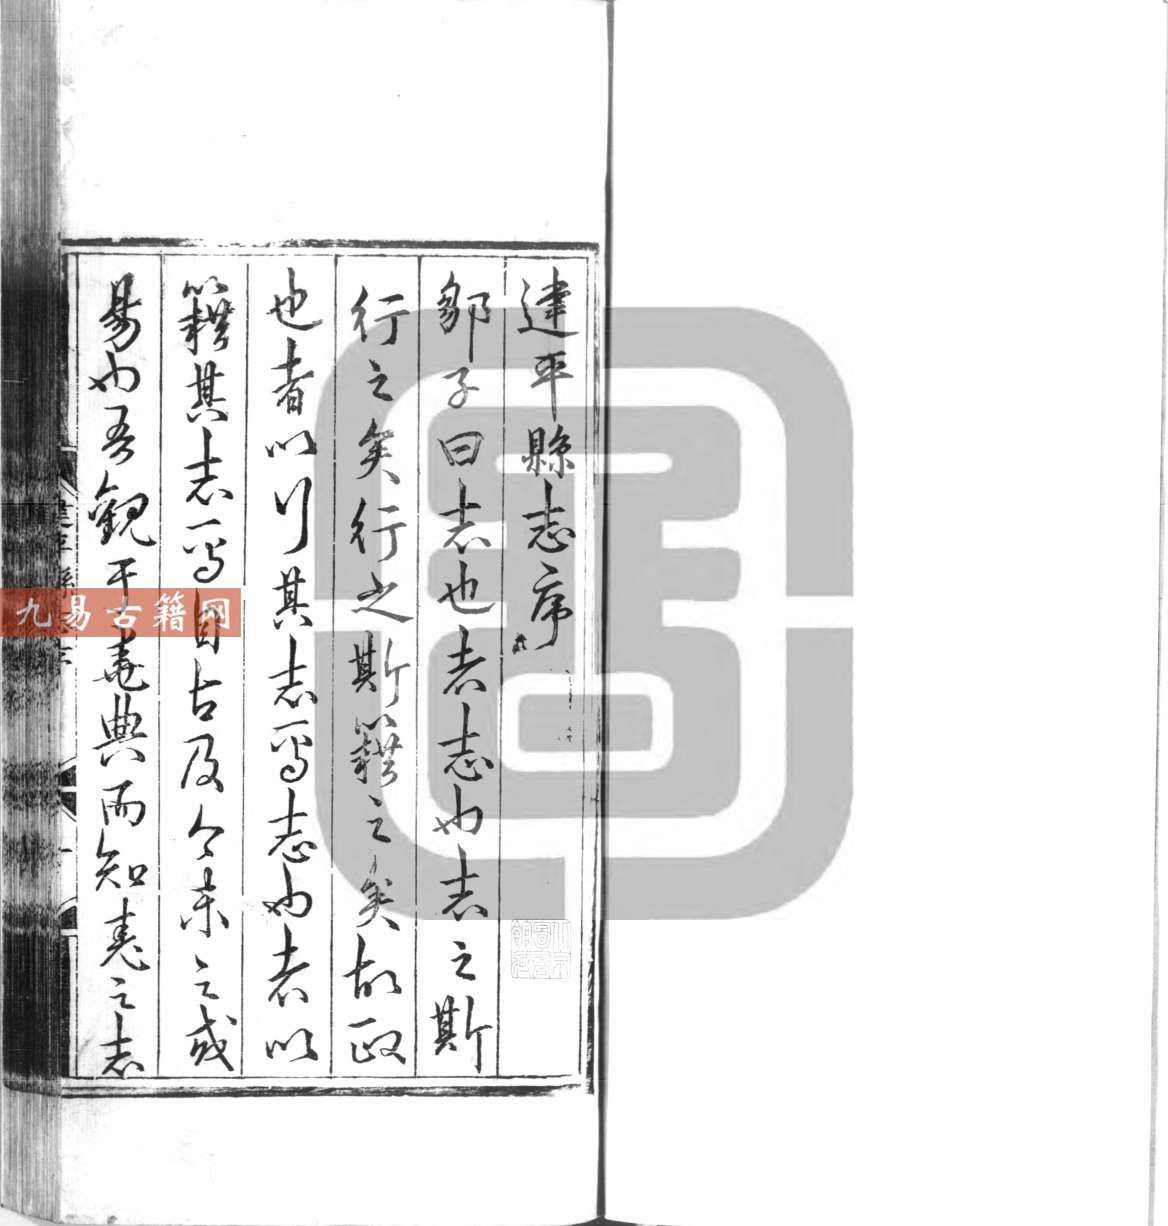 建平縣志序
鄒子曰志也者志也志之斯
行之矣行之斯籍之矣故政
也者以行其志焉志也者以
籍其志焉自古及今未之或
易也吾觀于堯典而知堯之志
九易古籍网